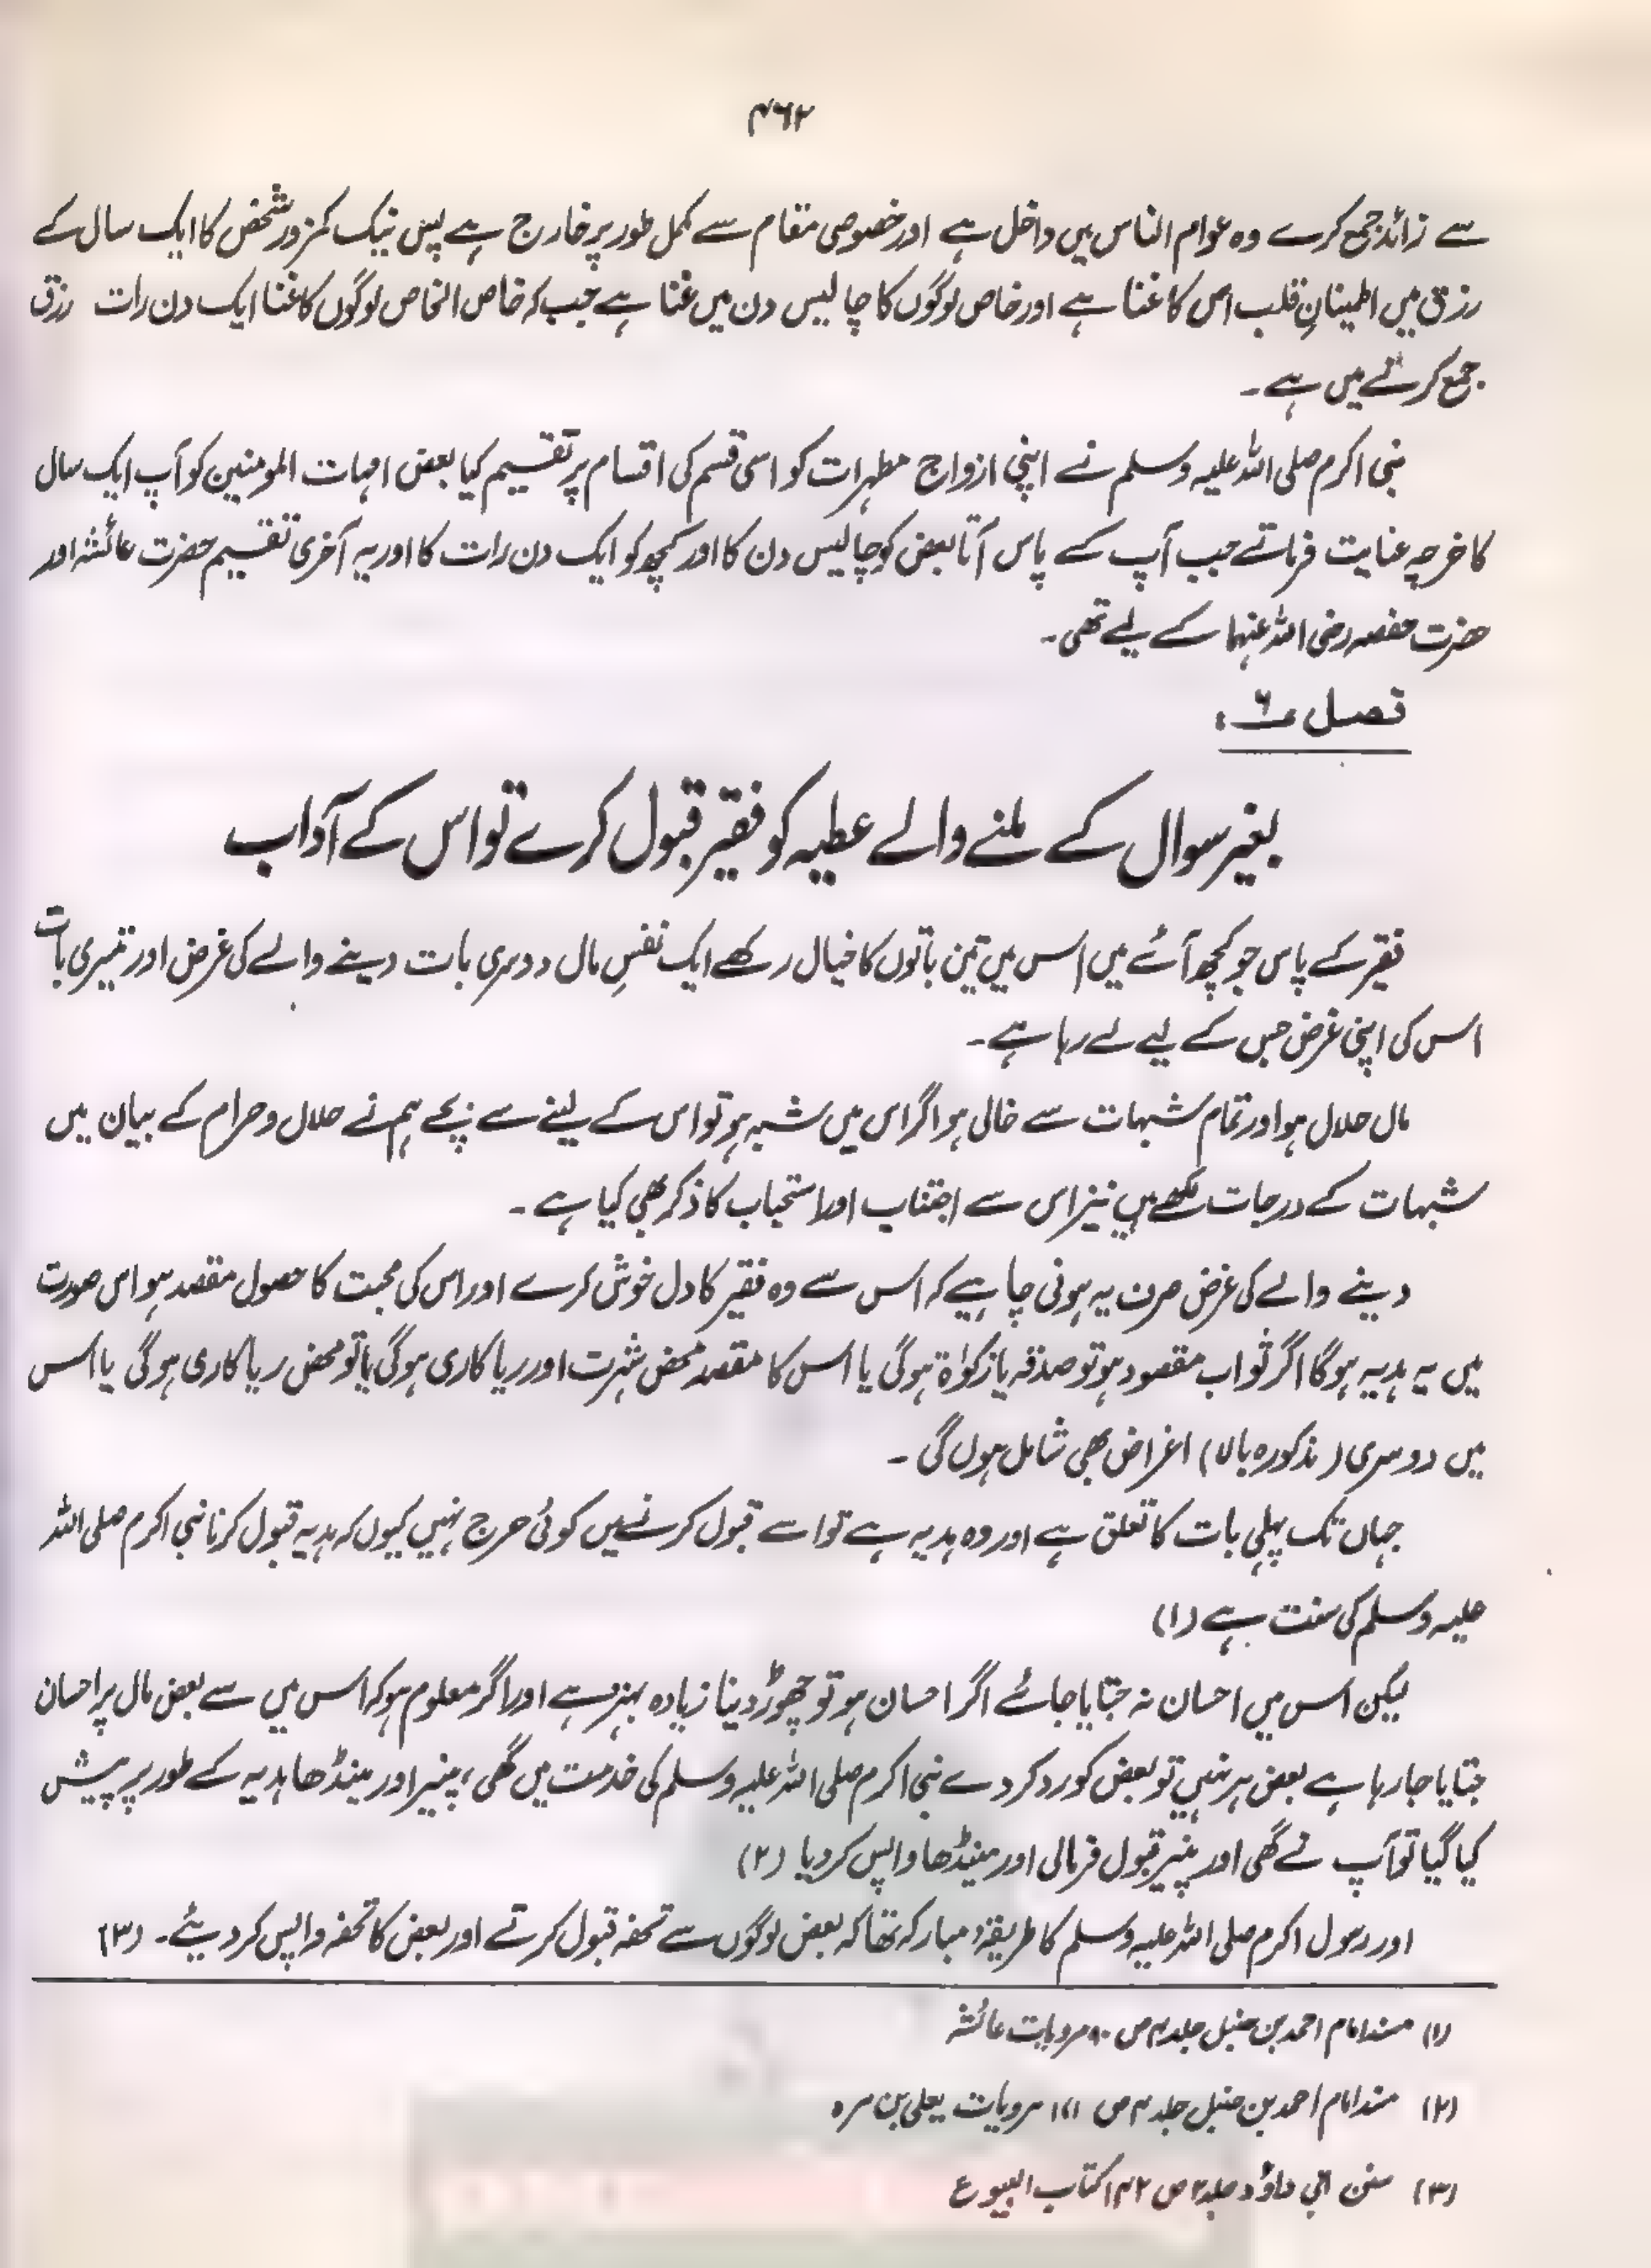 ۴۶۲
سے زائد جمع کرے وہ عوام الناس میں داخل ہے اور خصوصی مقام سے مکمل طور پر خارج ہے پس نیک کمزور شخص کا ایک سال کے
رزق میں اطمینانِ قلب اس کا غنا ہے اور خاص لوگوں کا چالیس دن میں غنا ہے جب کہ خاص الخاص لوگوں کا غنا ایک دن رات رزق
جمع کرنے میں ہے۔
نبی اکرم صلی اللہ علیہ وسلم نے اپنی ازواج مطہرات کو اسی قسم کی اقسام پر تقسیم کیا بعض امہات المومنین کو آپ ایک سال
کا خرچہ عنایت فرماتے جب آپ کے پاس آتا بعض کو چالیس دن کا اور کچھ کو ایک دن رات کا اور یہ آخری تقسیم حضرت عائشہ اور
حضرت حفصہ رضی اللہ عنہما کے لیے تھی۔
فصل ۶:
بغیر سوال کے ملنے والے عطیہ کو فقیر قبول کرے تو اس کے آداب
فقیر کے پاس جو کچھ آئے میں اس میں تین باتوں کا خیال رکھے ایک نفسِ مال دوسری بات دینے والے کی غرض اور تیسری بات
اس کی اپنی غرض جس کے لیے لے رہا ہے۔
مال حلال ہو اور تمام شبہات سے خالی ہو اگر اس میں شبہ ہو تو اس کے لینے سے بچے ہم نے حلال و حرام کے بیان میں
شبہات کے درجات لکھے ہیں نیز اس سے اجتناب اور استحباب کا ذکر بھی کیا ہے۔
دینے والے کی غرض صرف یہ ہونی چاہیے کہ اس سے وہ فقیر کا دل خوش کرے اور اس کی محبت کا حصول مقصد ہو اس صورت
میں یہ ہدیہ ہوگا اگر ثواب مقصود ہو تو صدقہ یا زکوٰۃ ہوگی یا اس کا مقصد محض شہرت اور ریا کاری ہوگی یا تو محض ریا کاری ہوگی یا اس
میں دوسری (مذکورہ بالا) اغراض بھی شامل ہوں گی۔
جہاں تک پہلی بات کا تعلق ہے اور وہ ہدیہ ہے تو اسے قبول کرنے میں کوئی حرج نہیں کیوں کہ ہدیہ قبول کرنا نبی اکرم صلی اللہ
علیہ وسلم کی سنت ہے (۱)
لیکن اس میں احسان نہ جتایا جائے اگر احسان ہو تو چھوڑ دینا زیادہ بہتر ہے اور اگر معلوم ہو کہ اس میں سے بعض مال پر احسان
جتایا جا رہا ہے بعض پر نہیں تو بعض کو رد کر دے نبی اکرم صلی اللہ علیہ وسلم کی خدمت میں گھی، پنیر اور مینڈھا ہدیہ کے طور پر پیش
کیا گیا تو آپ نے گھی اور پنیر قبول فرمالی اور مینڈھا واپس کر دیا (۲)
اور رسول اکرم صلی اللہ علیہ وسلم کا طریقۂ مبارکہ تھا کہ بعض لوگوں سے تحفہ قبول کرتے اور بعض کا تحفہ واپس کر دیتے۔ (۳)
(۱) مسند امام احمد بن حنبل جلد ۶ ص ۹۰ مرویات عائشہ
(۲) مسند امام احمد بن حنبل جلد ۴ ص ۱۷۱ مرویات یعلی بن مرہ
(۳) سنن ابی داؤد جلد ۲ ص ۱۴۲ کتاب البیوع